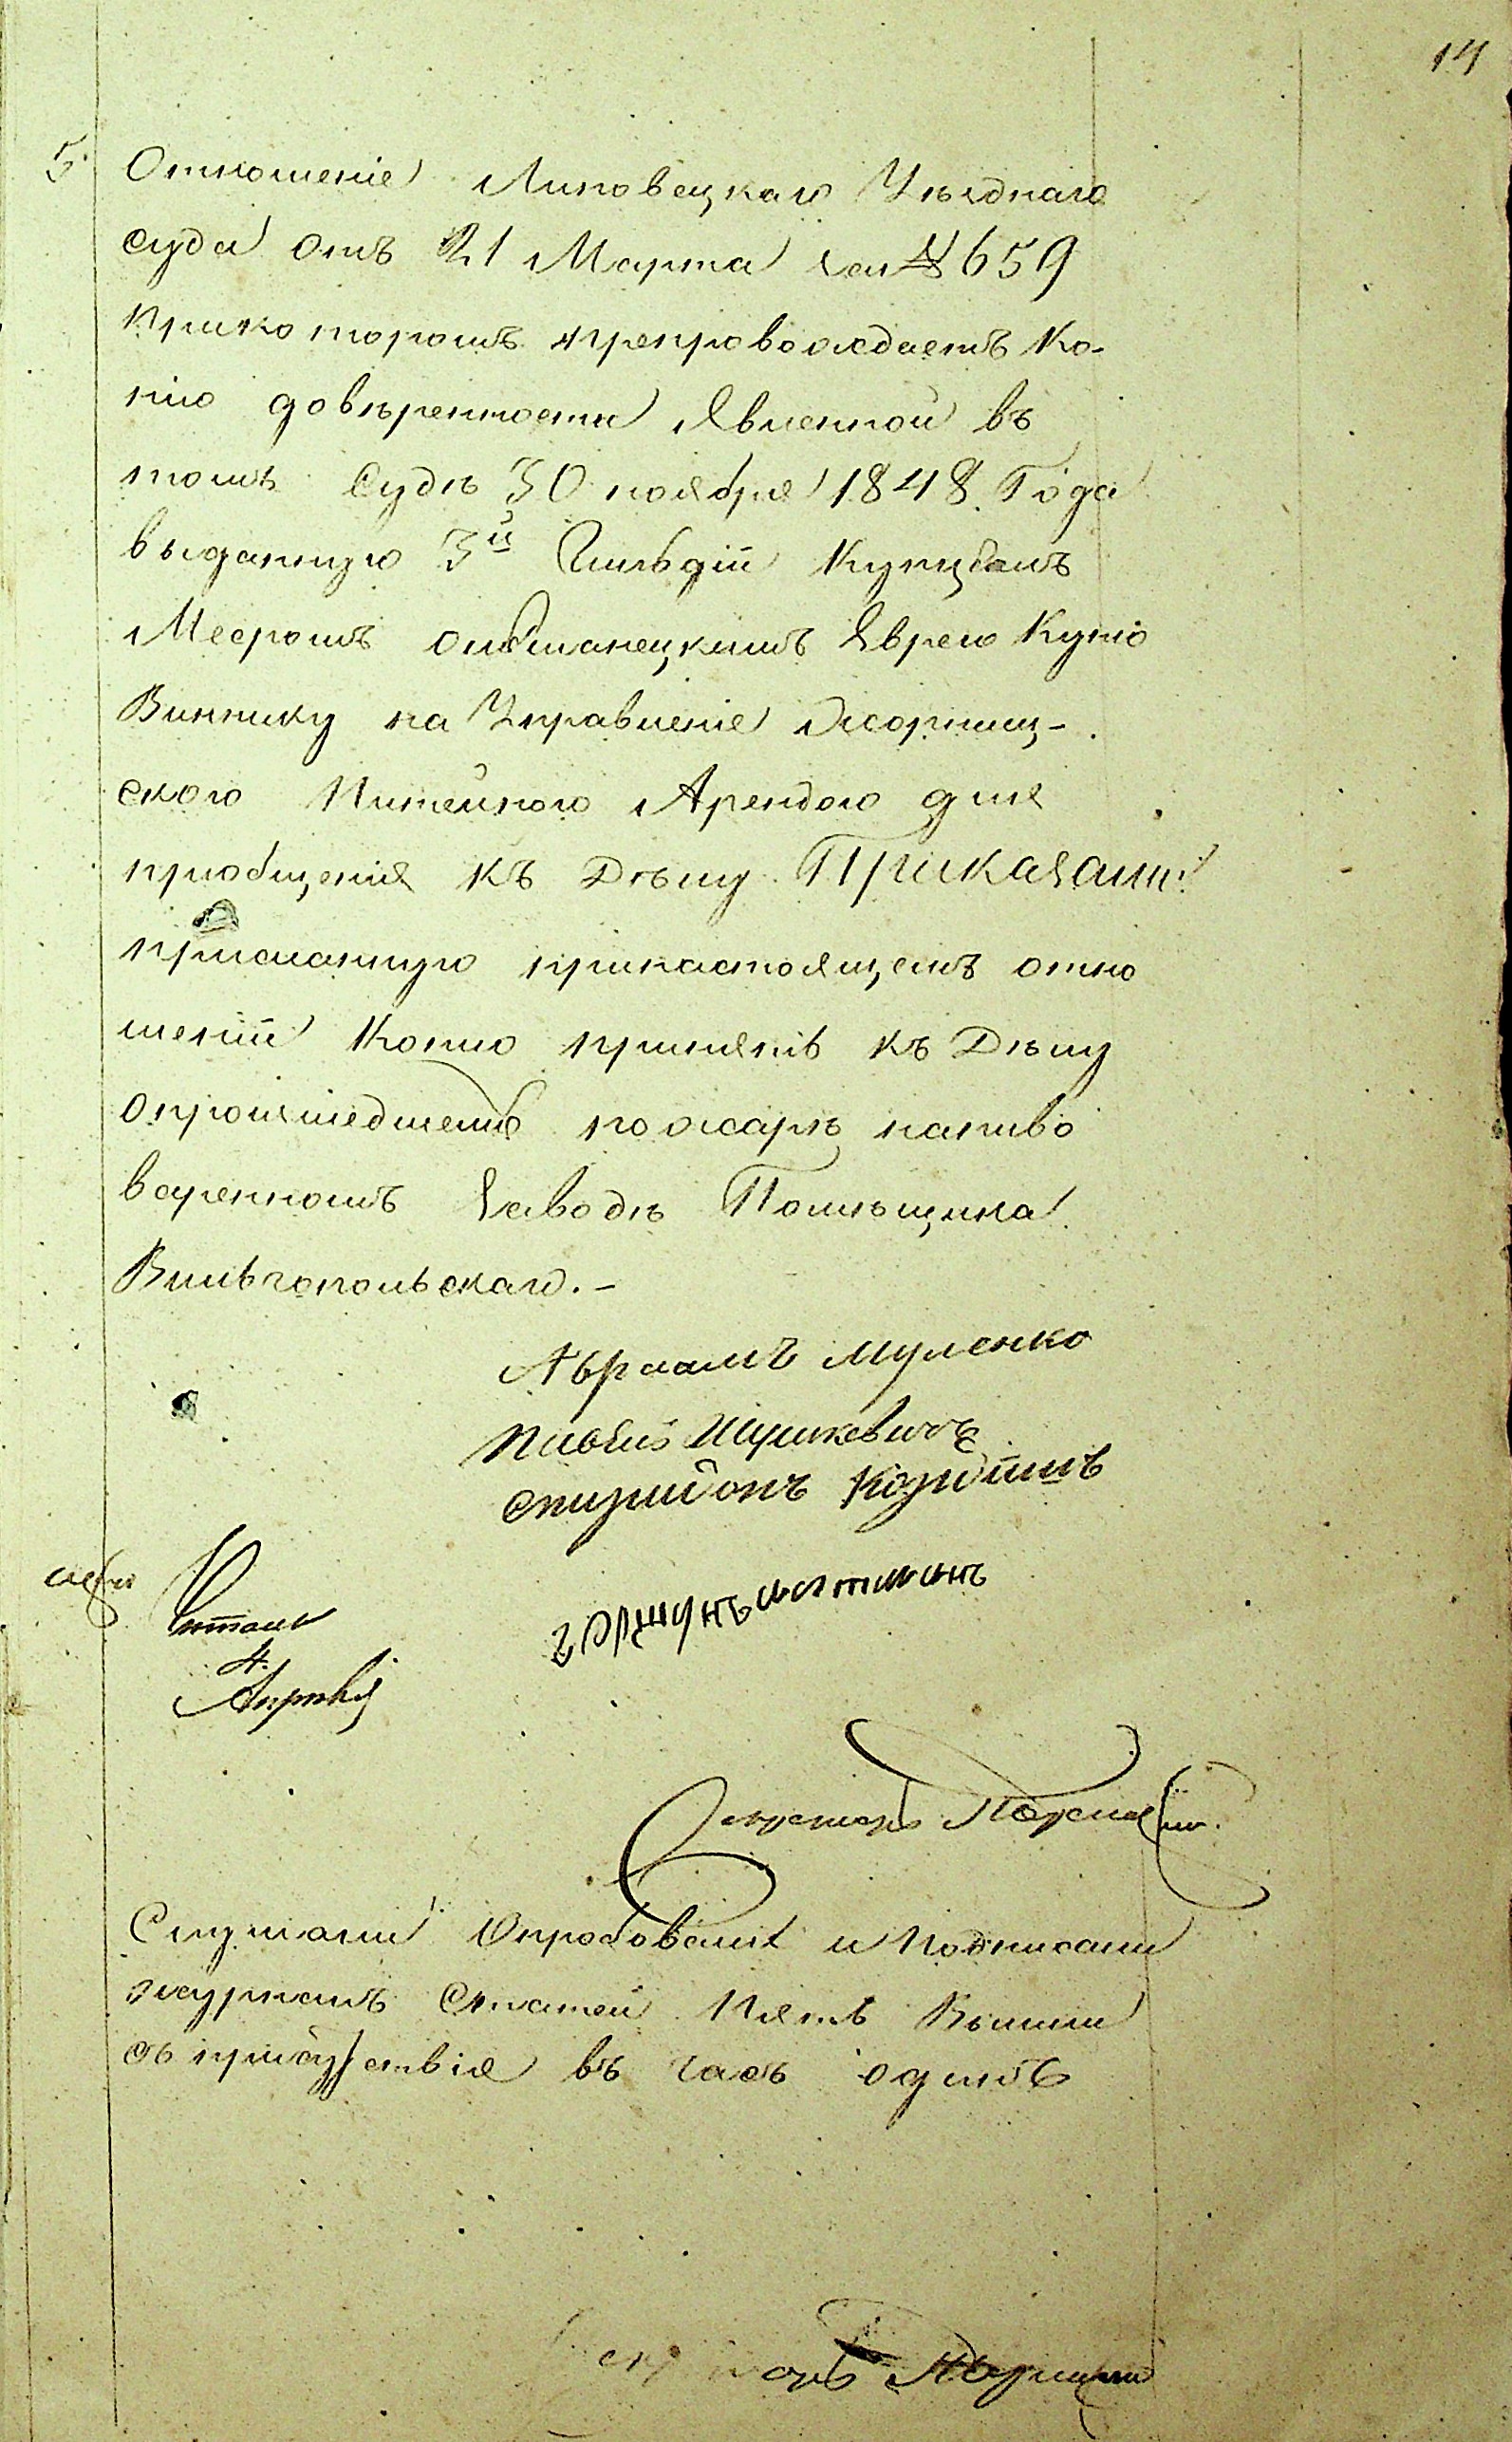 14
5. Отношеніе Липовецкаго Уѣзднаго
суда отъ 21 Марта за № 659
при которомъ препровождаетъ Ко-
пію довѣренности Явленной въ
томъ Судѣ 30 ноября 1848. Года
выданную 3й Гильдіи Купцомъ
Мееромъ Еврею Купію
Виннику на Управленіе Жорнищ-
ского Питейного Арендою для
приобщенія къ Дѣлу. Приказали:
присланную принастоящемъ отно
шеніи Копію принять къ Дѣлу
опроисшедшемъ пожарѣ напиво
варенномъ Заводѣ Помѣщика
Вильгопольскаго. –
Авраамъ Муленко
Шушкевичъ
Спиридонъ
Читалъ
Секретарь
Слушали Опробовали и Подписали
журналъ Статей Пять Вышли
съ присутствія въ часъ одинъ